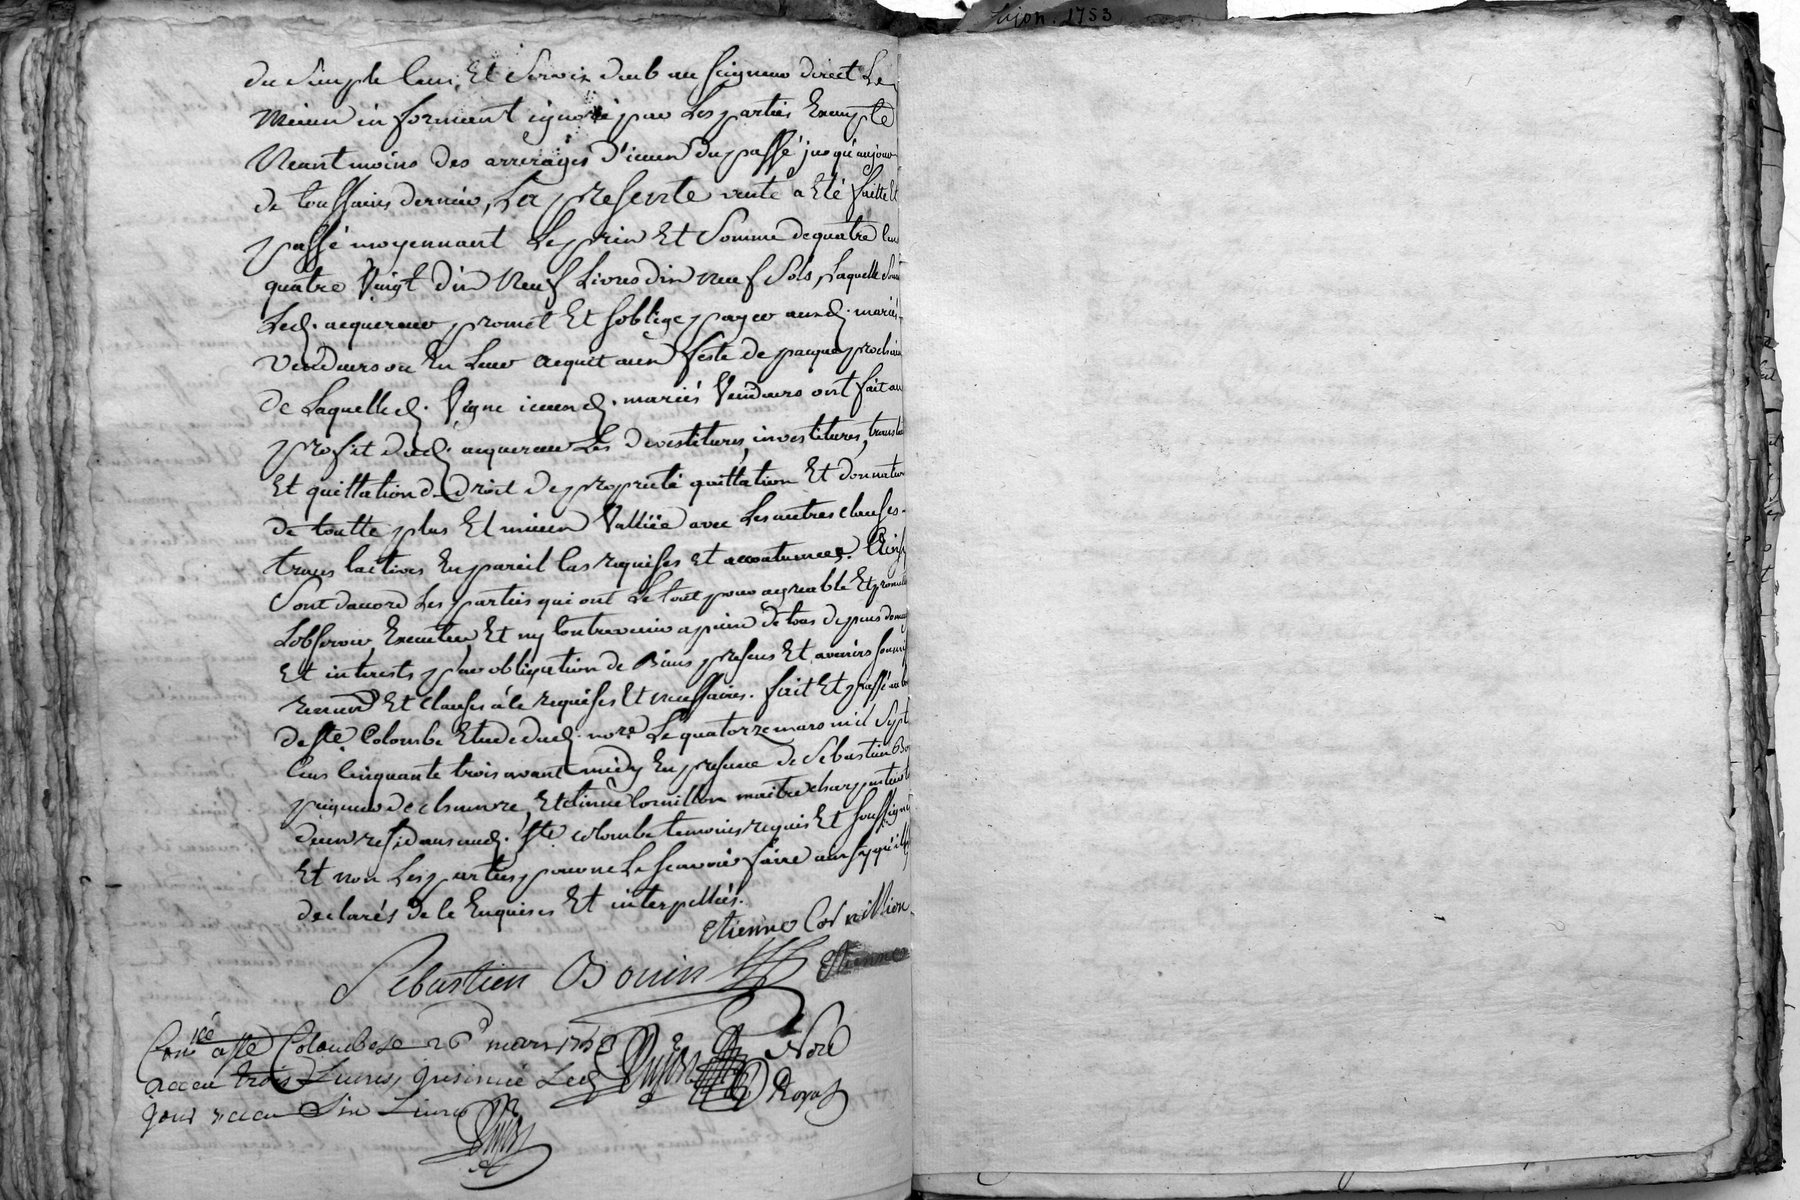 Dujon. 1753
du simple Cens, Et Servis deub au seigneur direct Le
mieux informent ignoré par Les parties Exempte
Neantmoins des arrerages d'iceux du passé jusqu'aujour
de toussains dernier, La presente vente a Eté faitte Et
passé moyennant Le prix Et Somme de quatre Cens
quatre Vingt dix Neuf Livres dix neuf Sols, Laquelle Somme
Led. acquereur promet Et soblige payer ausd. mariés
Vendeurs ou En Leur acquit aux feste de pacque prochain
de Laquelle d. Vigne iceux d. mariés Vendeurs ont fait au
profit dud. acquereur Les devestitures, investitures,
Et quittation de droit de proprieté quittation Et donnation
de toutte plus Et mieux Vallüe avec Les autres clauses
translactives En pareil Cas requises et accoutumées. Ainsy
Sont daccord Les parties qui ont Le tout pour agreable Et promettent
Lobserver, Executer, Et ny Contrevenir a peine de tous depens
Et interests par obligation de Biens presens Et avenirs
Et clauses à ce requises Et necessaires. fait Et passé au
de Ste Colombe Etude dud. nore Le quatorze mars mil Sept
Cens Cinquante trois avant midy En presence de Sebastien
peigneur de chanvre, Et Etienne Cornillon maitre charpentier
deux residans aud. Ste colombe temoins requis Et soussignés
Et non Les parties pour ne Le scavoir faire ainsy qu'
declarés de ce Enquises Et interpellées.
Etienne Cornillion
Sebastien Bonin Etienne
Conlé a Ste Colombe Le 26 mars 1753 Dujon Nore
receu trois Livres, insinué Led Royal
jour receu Six Livres
Dujon